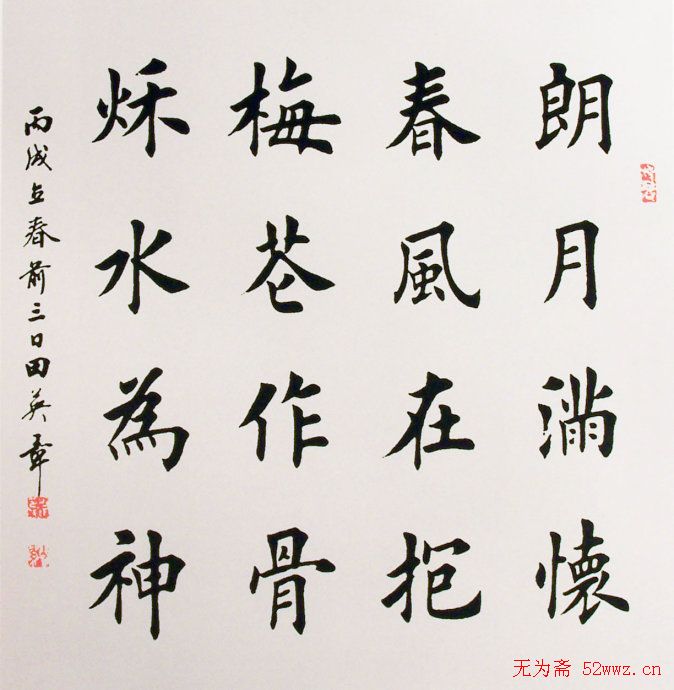 朗月滿懷
春風在抱
梅芲作骨
秌水為神
丙戌立春前三日田英章
无为斋 52wwz.cn